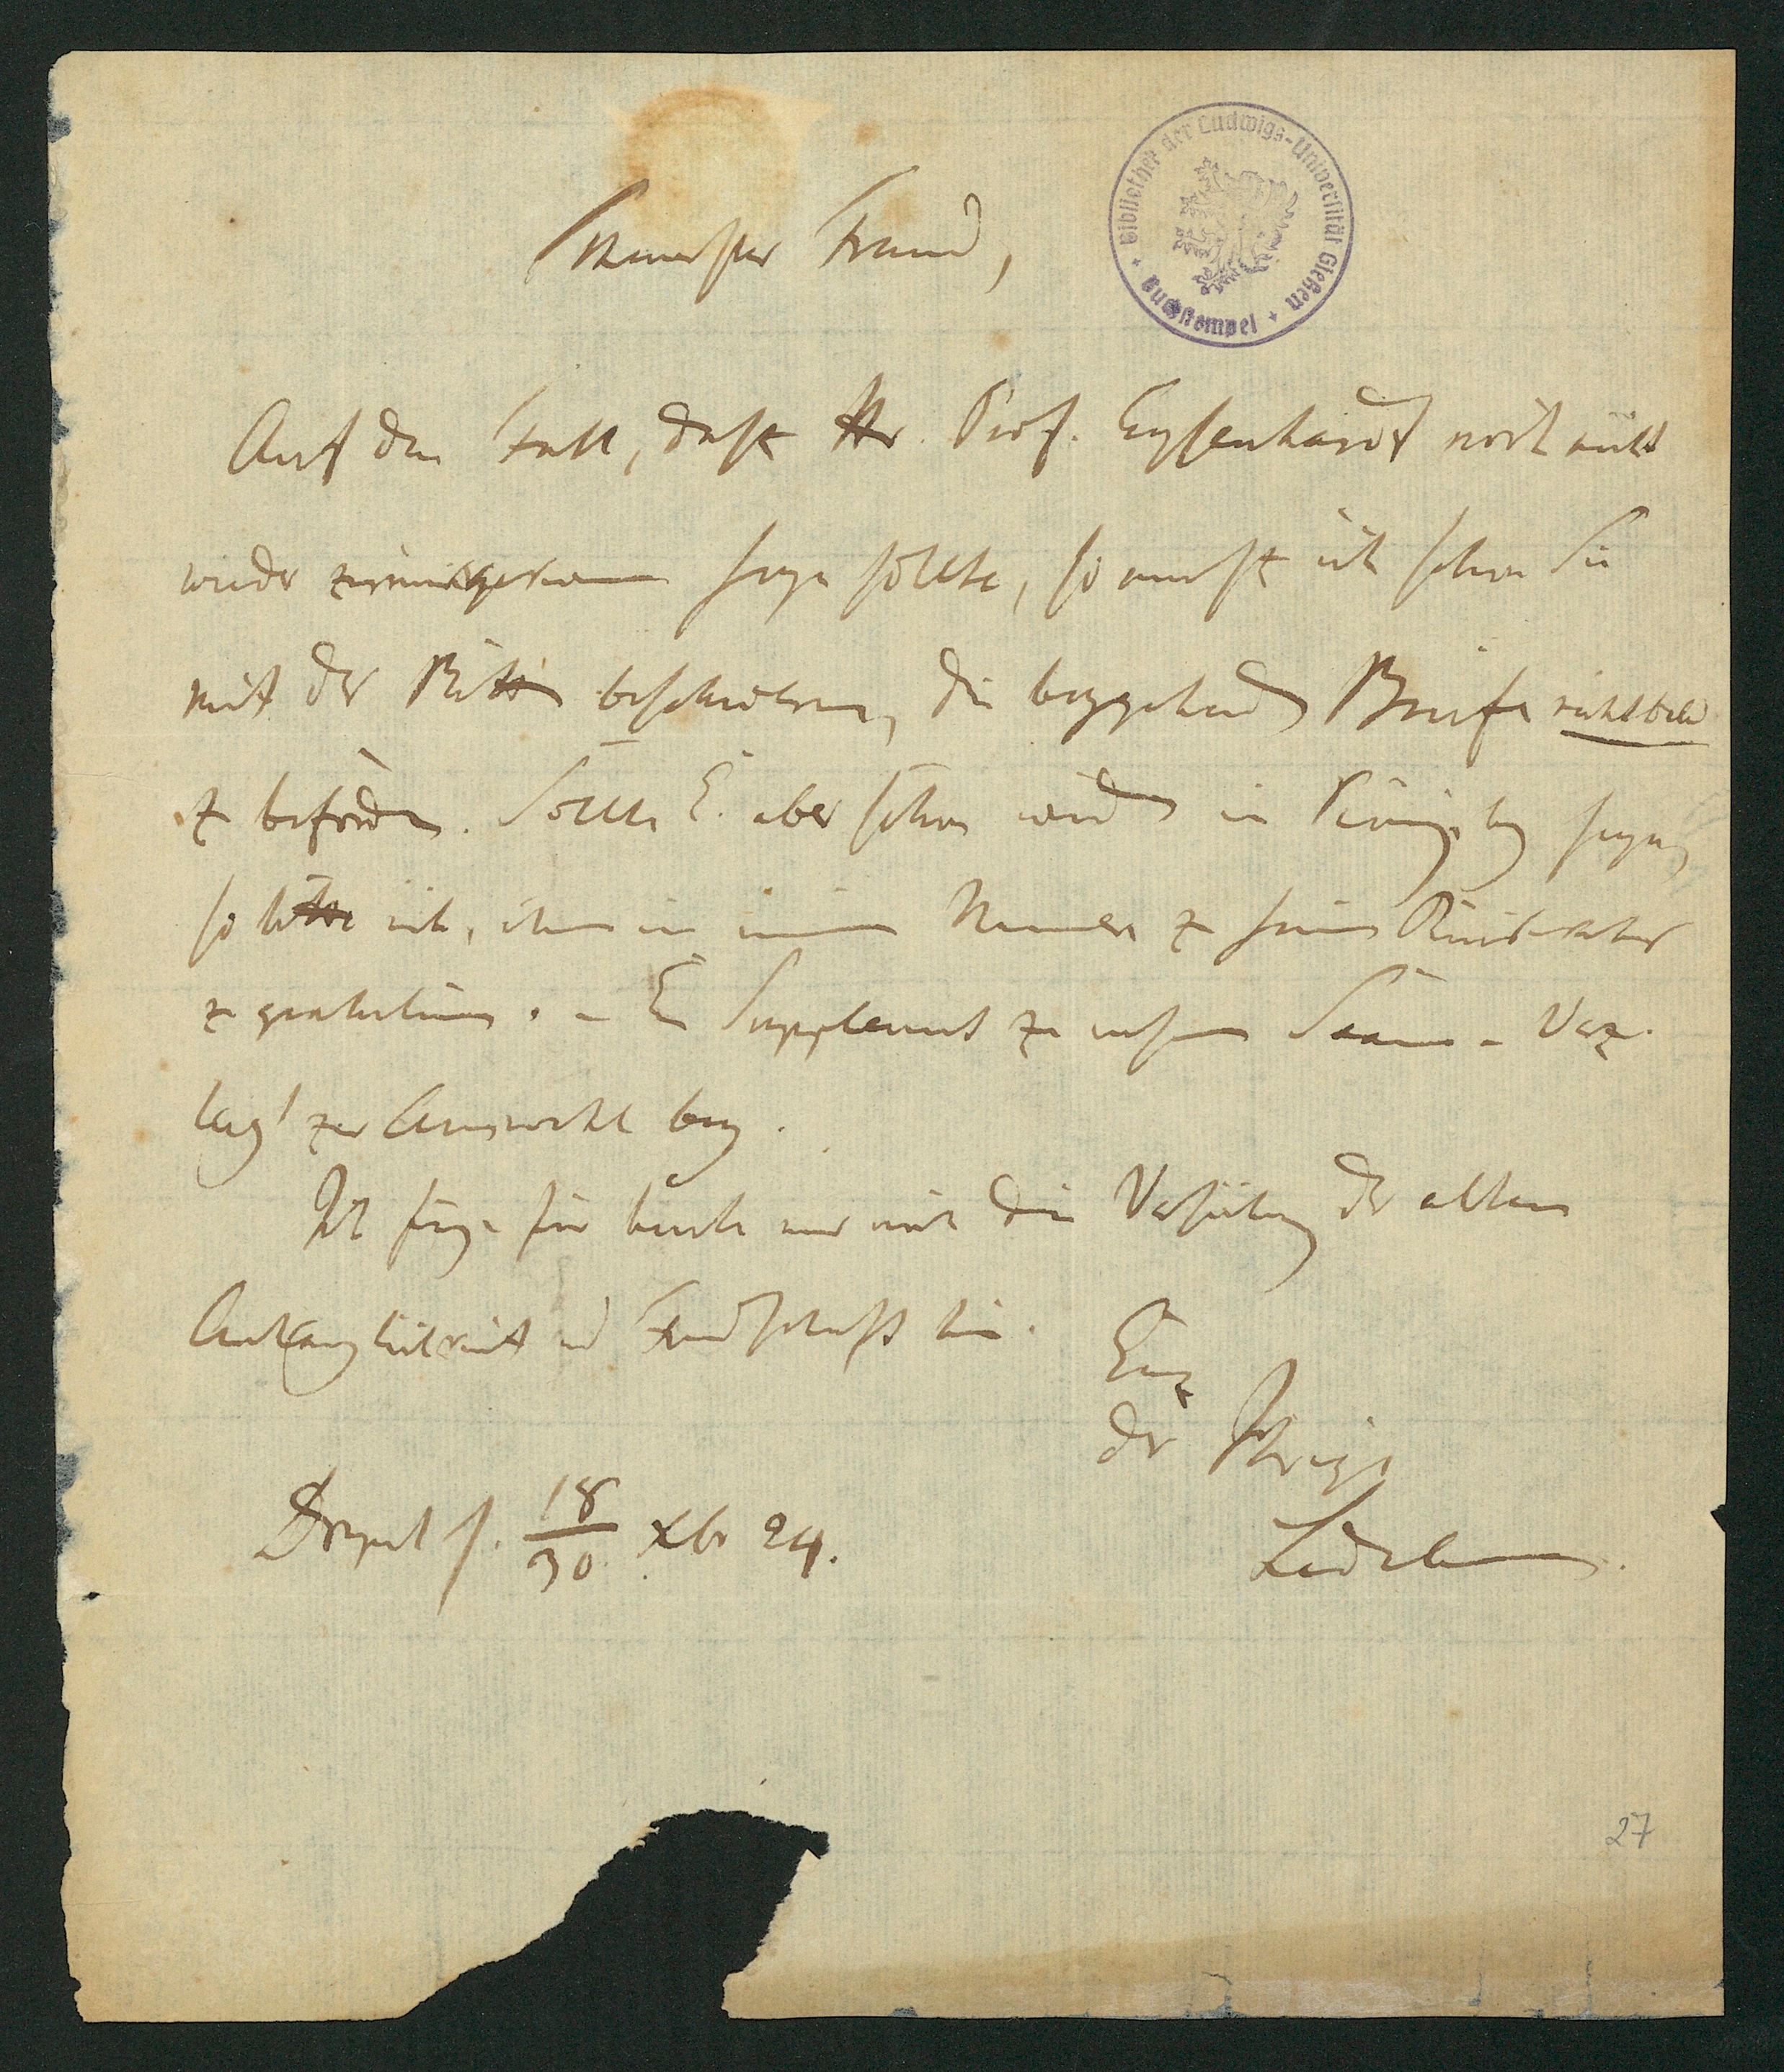 Theuerster Freund,
Bibliothek der Ludwigs-Universität Gießen
Buchstempel
Auf den Fall, daß Hr. Prof. Eysenhardt noch nicht
wieder zurückgekommen seyn sollte, so muß ich schon Sie
mit der Bitte beschweren, die beygehenden Briefe
zu befördern. Sollte E. aber schon wieder in Königsberg seyn,
so bitte ich, ihm in meinem Namen zu seiner Rückkehr
zu gratuliren. – Ein Supplement zu unserm Saamen-Verz.
liegt zur Auswahl bey.
Ich füge für heute nur noch die Versicherung der alten
Anhänglichkeit und Freundschaft bei.
Ganz
der Ihrige
Ledebour.
Dorpat d. 18/30 Xbr 24.
27